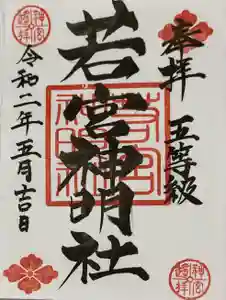 奉拝 五等級
若宮神明社
令和二年五月吉日